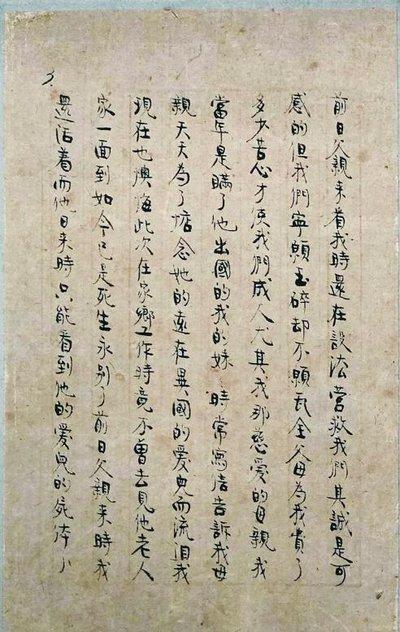 前日父親来看我時還在設法营救我們其誠是可
感的但我們寧願玉碎却不願瓦全父母為我費了
多少苦心才使我們成人尤其我那慈爱的母親我
當年是瞞了他出國的我的妹時常寫信告訴我母
親天天為了惦念她的遠在異國的爱兒而流泪我
現在也懊悔此次在家鄉工作時竟不曾去見他老人
家一面到如今已是死生永别了前日父親来時我
還活着而他日来時只能看到他的爱兒的屍体了